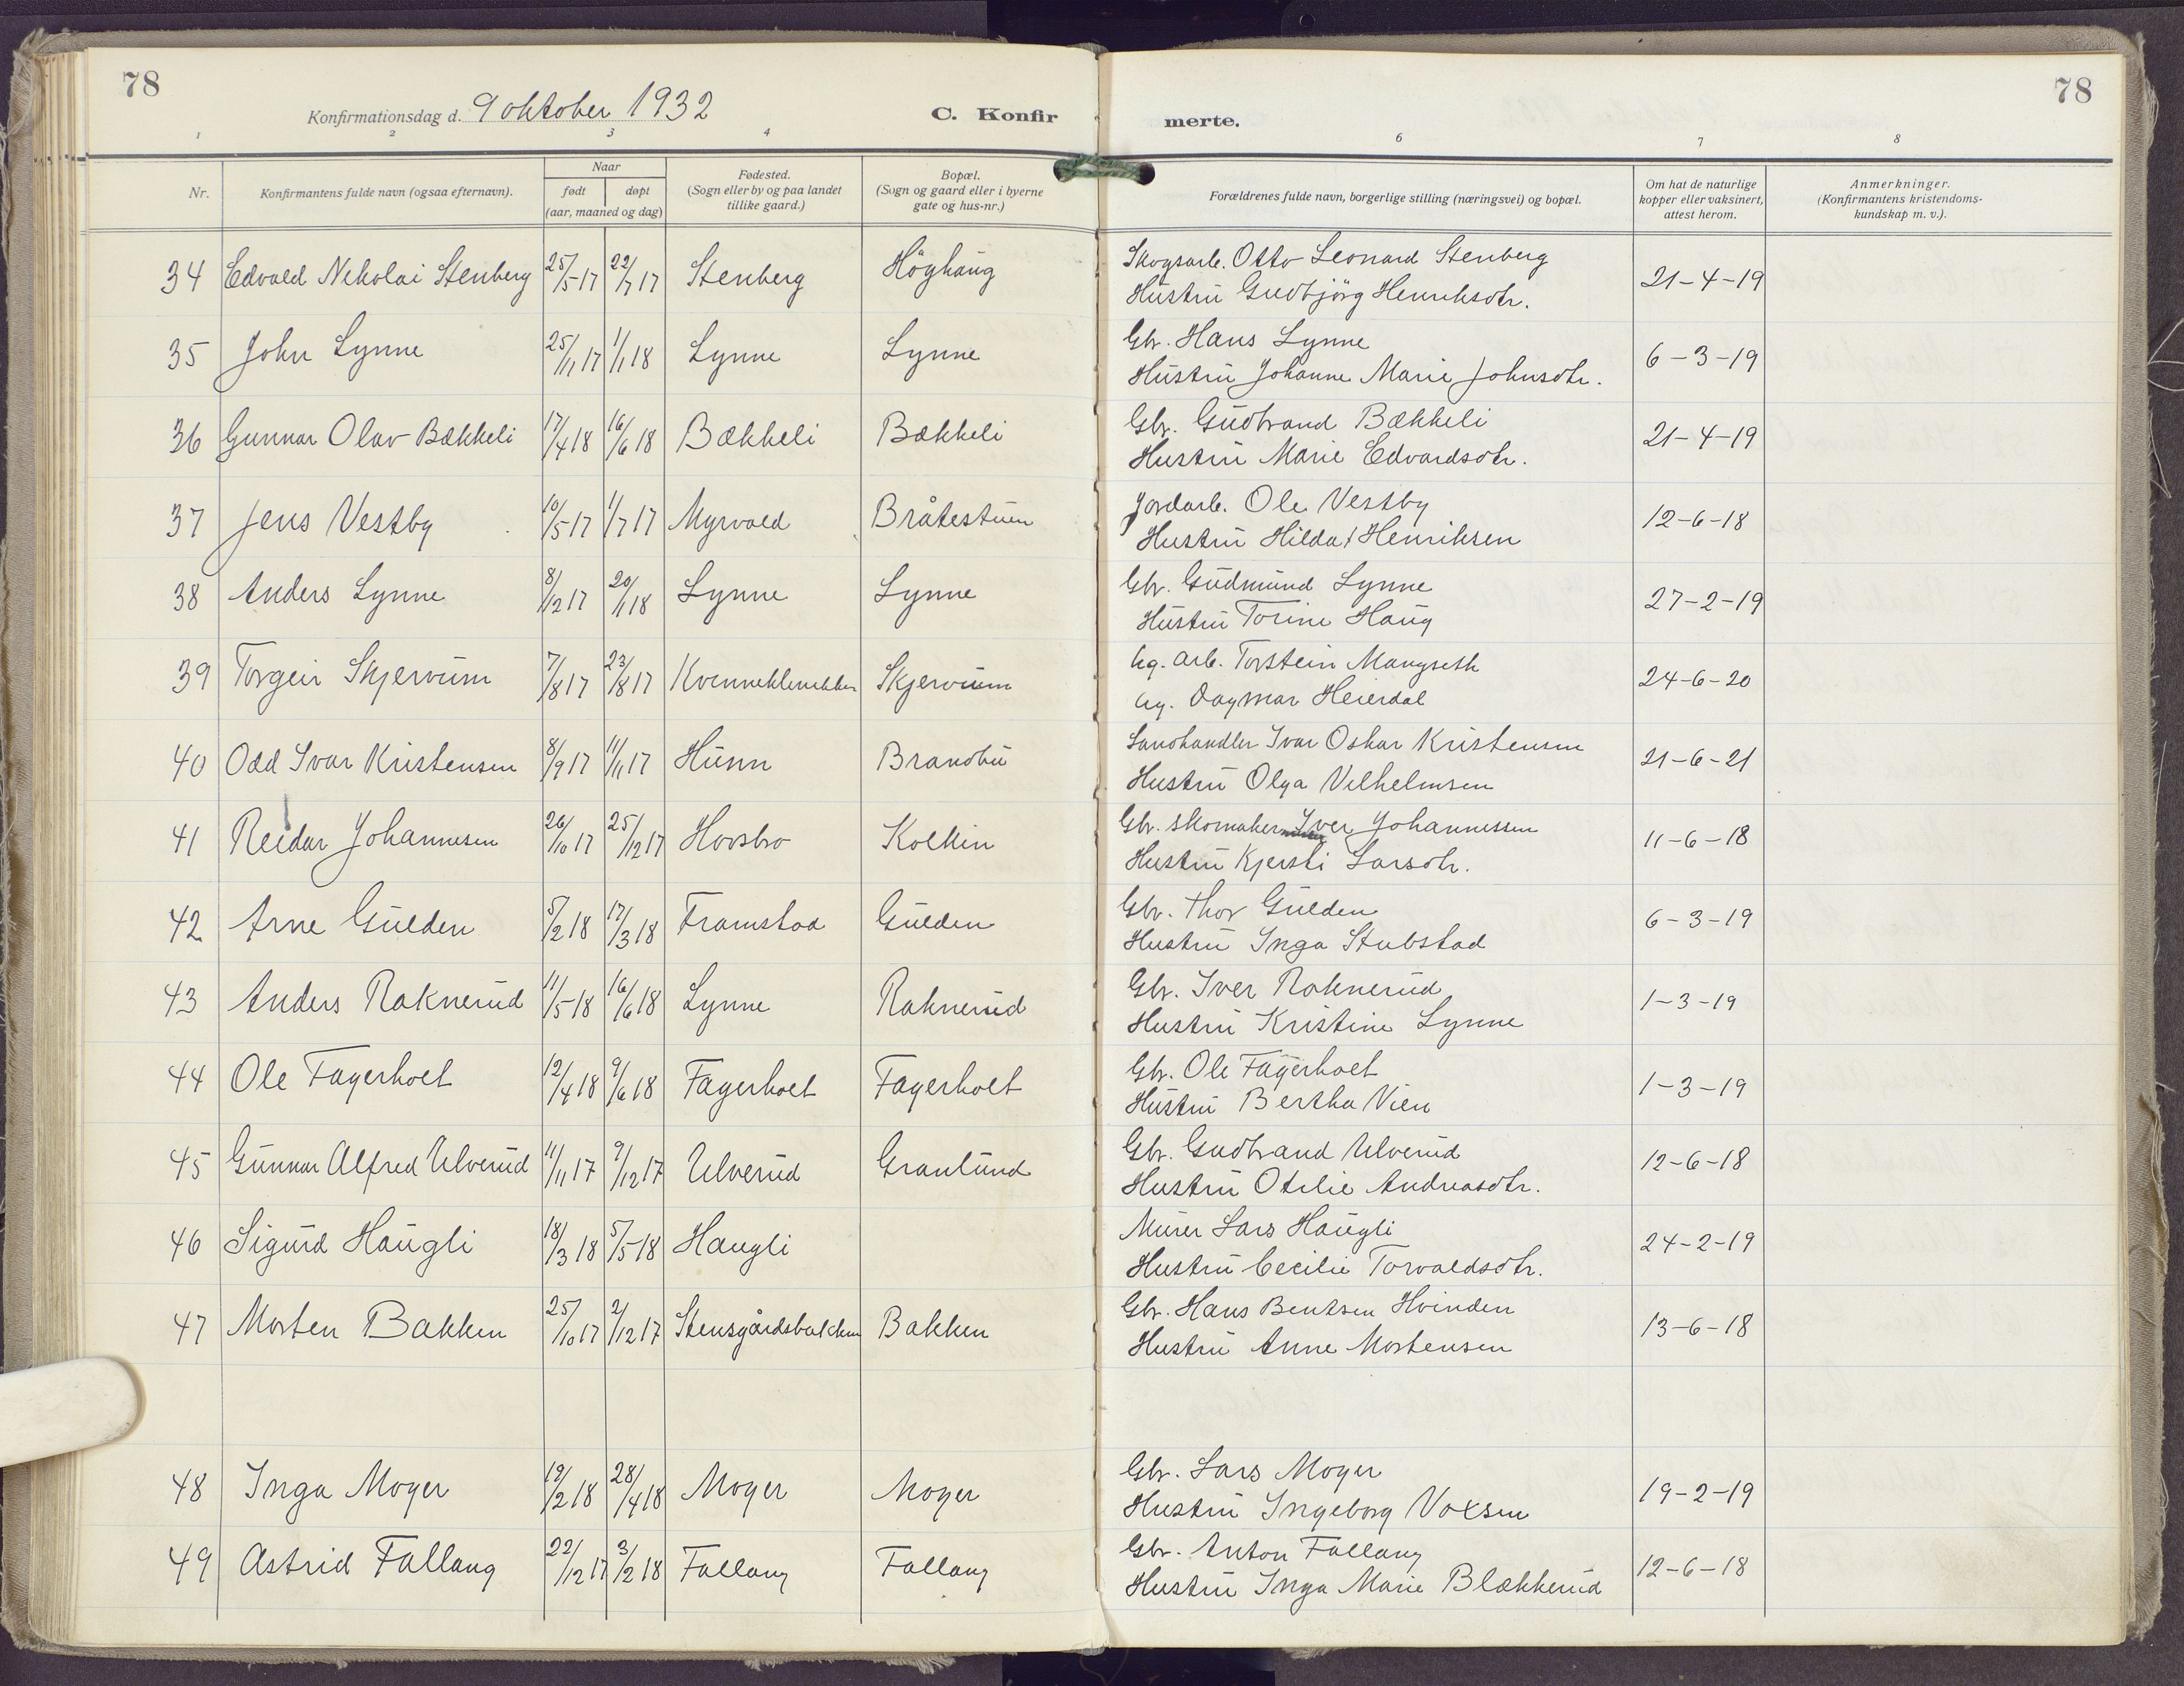 78
78
Konfirmationsdag d. 9 oktober 1932
C. Konfirmerte.
1 2 3 4 6 7 8
Nr.
Konfirmantens fulde navn (ogsaa efternavn).
Naar
født døpt
(aar, maaned og dag)
Fødested.
(Sogn eller by og paa landet
tillike gaard.)
Bopæl.
(Sogn og gaard eller i byerne
gate og hus-nr.)
Forældrenes fulde navn, borgerlige stilling (næringsvei) og bopæl.
Om hat de naturlige
kopper eller vaksinert,
attest herom.
Anmerkninger.
(Konfirmantens kristendoms-
kundskap m. v.).
34 Edvald Nikolai Stenberg 25/5-17 22/7 17 Stenberg Höghaug Skogsarb. Otto Leonard Stenberg 21-4-19
Hustru Gudbjörg Henriksdtr.
35 John Lynne 25/11 17 1/1 18 Lynne Lynne Gbr. Hans Lynne 6-3-19
Hustru Johanne Marie Johnsdtr.
36 Gunnar Olav Bækkeli 17/4 18 16/6 18 Bækkeli Bækkeli Gbr. Gudbrand Bækkeli 21-4-19
Hustru Marie Edvardsdtr.
37 Jens Vestby 10/5 17 1/7 17 Myrvold Bråtestuen Jordarb. Ole Vestby 12-6-18
Hustru Hilda Henriksen
38 Anders Lynne 8/12 17 20/1 18 Lynne Lynne Gbr. Gudmund Lynne 27-2-19
Hustru Torine Haug
39 Torgeir Skjervum 7/8 17 23/8 17 Skjervum Ug. arb. Torstein Mangseth 24-6-20
Ug. Dagmar Heierdal
40 Odd Ivar Kristensen 8/9 17 11/11 17 Hunn Brandbu Landhandler Ivar Oskar Kristensen 21-6-21
Hustru Olga Vilhelmsen
41 Reidar Johannesen 26/10 17 25/12 17 Hovsbro Kolkin Gbr. skomaker Iver Johannessen 11-6-18
Hustru Kjersti Larsdtr.
42 Arne Gulden 5/2 18 17/3 18 Framstad Gulden Gbr. Thor Gulden 6-3-19
Hustru Inga Stubstad
43 Anders Raknerud 11/5-18 16/6 18 Lynne Raknerud Gbr. Iver Raknerud 1-3-19
Hustru Kristine Lynne
44 Ole Fagerholt 12/4 18 9/6 18 Fagerholt Fagerholt Gbr. Ole Fagerholt 1-3-19
Hustru Bertha Vien
45 Gunnar Alfred Ulverud 11/11 17 9/12 17 Ulverud Granlund Gbr. Gudbrand Ulverud 12-6-18
Hustru Otilie Andreasdtr.
46 Sigurd Haugli 18/3 18 5/5-18 Haugli Murer Lars Haugli 24-2-19
Hustru Cecilie Torvaldsdtr.
47 Morten Bakken 25/10 17 2/12 17 Stensgårdsbakken Bakken Gbr. Hans Bentsen Hvinden 13-6-18
Hustru Anne Mortensen
48 Inga Moger 19/2 18 28/4 18 Moger Moger Gbr. Lars Moger 19-2-19
Hustru Ingeborg Voxsen
49 Astrid Fallang 22/12 17 3/2 18 Fallang Fallang Gbr. Anton Fallang 12-6-18
Hustru Inga Marie Blækkerud